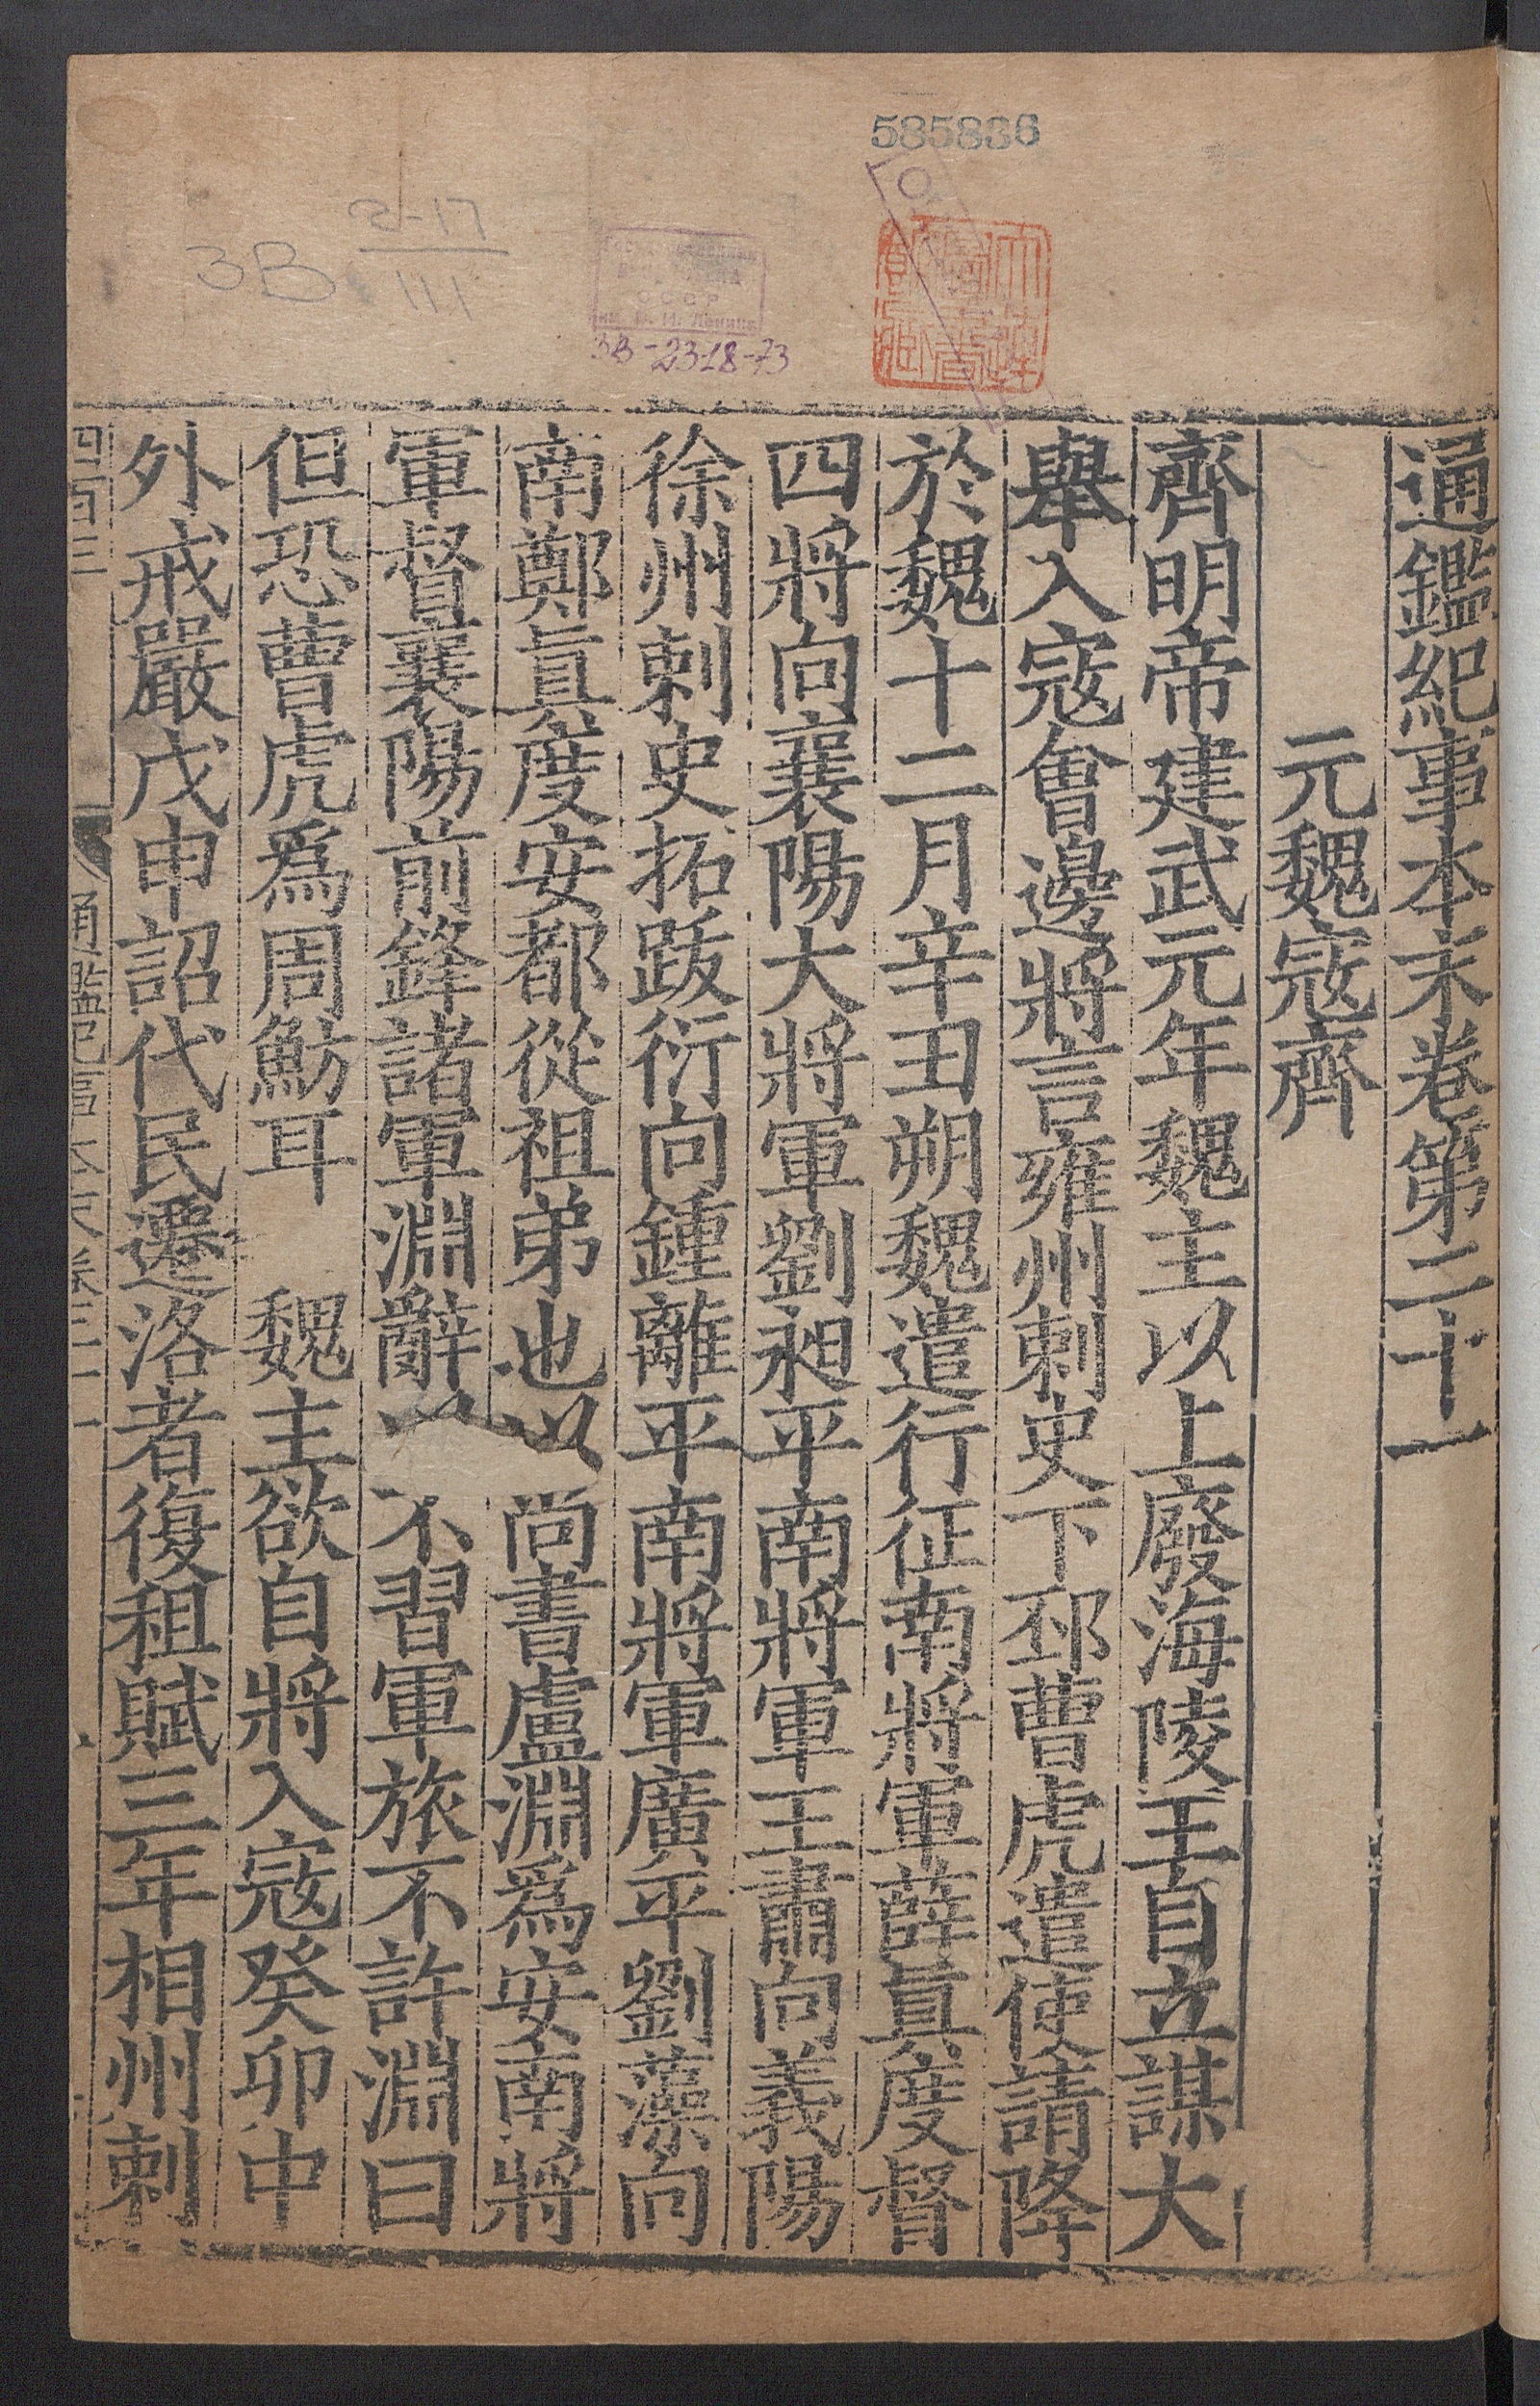 585836
2-17
3B 111
СССР
3B-23-18-73
通鑑紀事本末卷第二十一
元魏寇齊
齊明帝建武元年魏主以上廢海陵王自立謀大
舉入寇會邊將言雍州刺史下邳曹虎遣使請降
於魏十二月辛丑朔魏遣行征南將軍薛眞度督
四將向襄陽大將軍劉昶平南將軍王肅向義陽
徐州刺史拓跋衍向鍾離平南將軍廣平劉藻向
南鄭眞度安都從祖弟也以尚書盧淵爲安南將
軍督襄陽前鋒諸軍淵辭以不習軍旅不許淵曰
但恐曹虎爲周魴耳 魏主欲自將入寇癸卯中
外戒嚴戊申詔代民遷洛者復租賦三年相州刺
四百三
通鑑紀事本末卷二十一